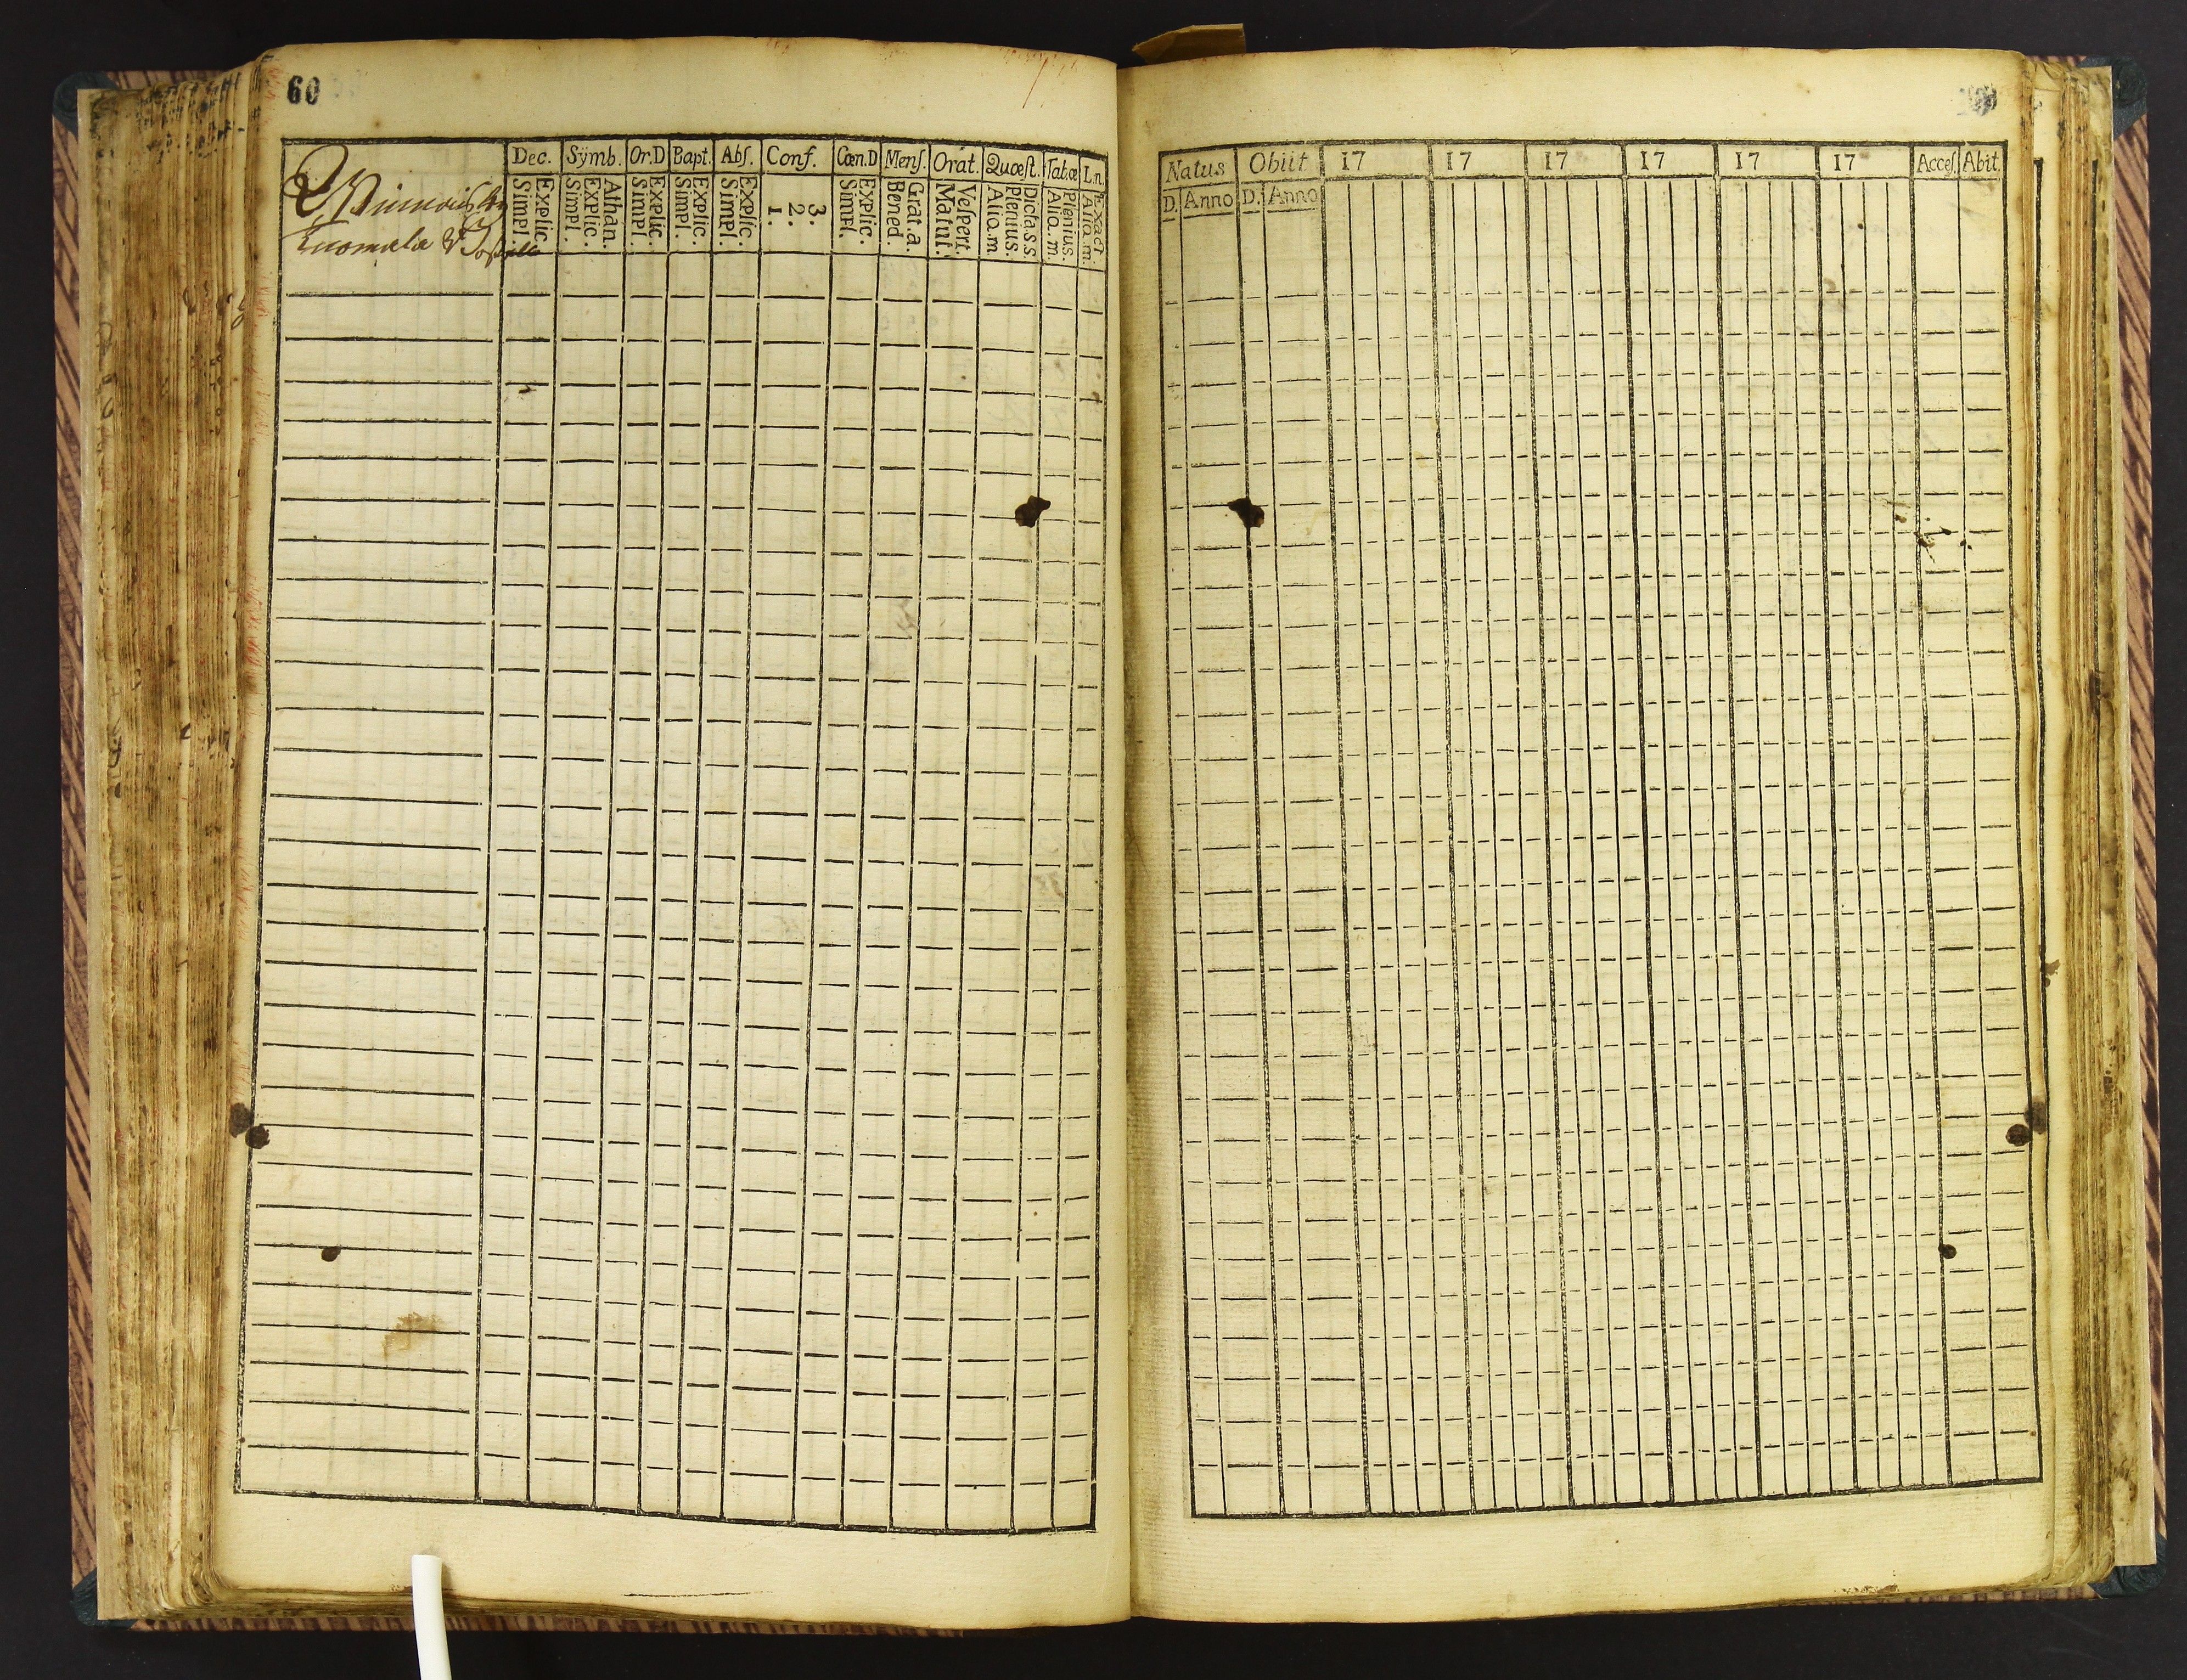 60
Dec. Sÿmb. Or.D Bapt. Abſ. Conf. Cœn.D Menſ. Orat. Quæſt. Tat.æ I.n.
Explic. Simpl. Athan. Explic. Simpl. Explic. Simpl. Explic. Simpl. Explic. Simpl. 3. 2. 1. Explic. Simpl. Grat.a. Bened. Veſpert. Matut. Dicta.s.s Plenius. Aliq.m Plenius. Aliq.m. Exact. Aliq.m.
Natus Obiit 17 17 17 17 17 17 Acceſ. Abit.
D. Anno D. Anno